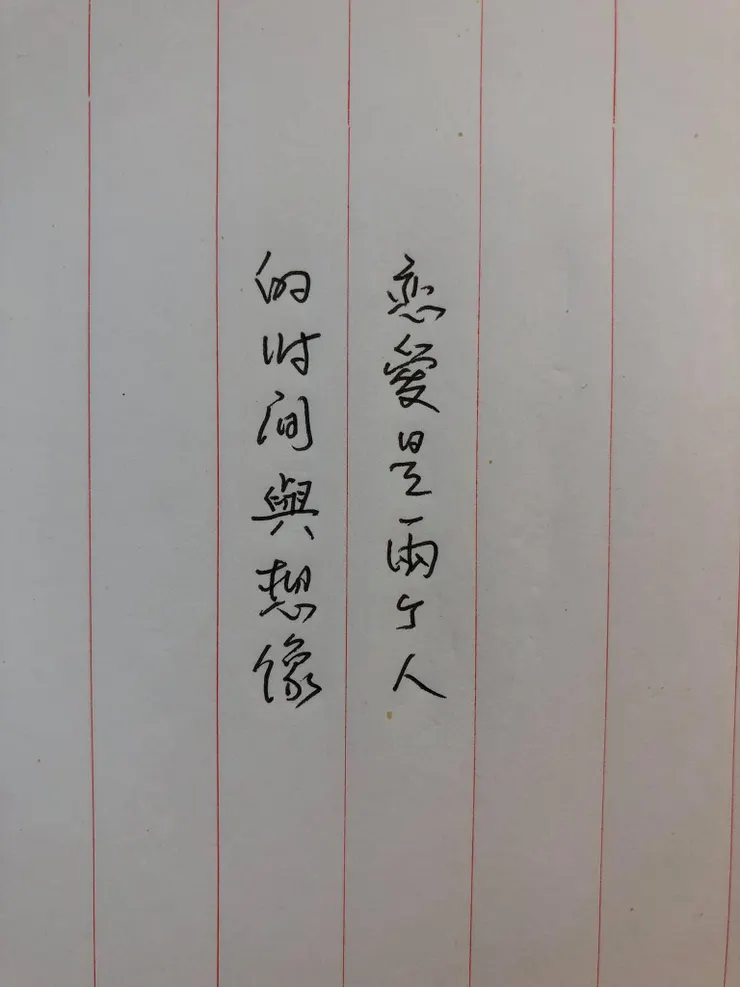 恋愛是兩个人
的时间與想像